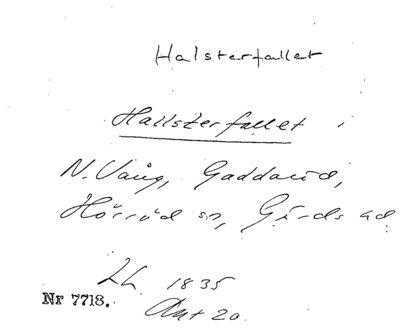 Halsterfallet
Hallsterfallet i
N. Vång, Gaddaröd,
Hörröd sn, Gärds hd
LH. 1835
Nr 7718. Akt 20.